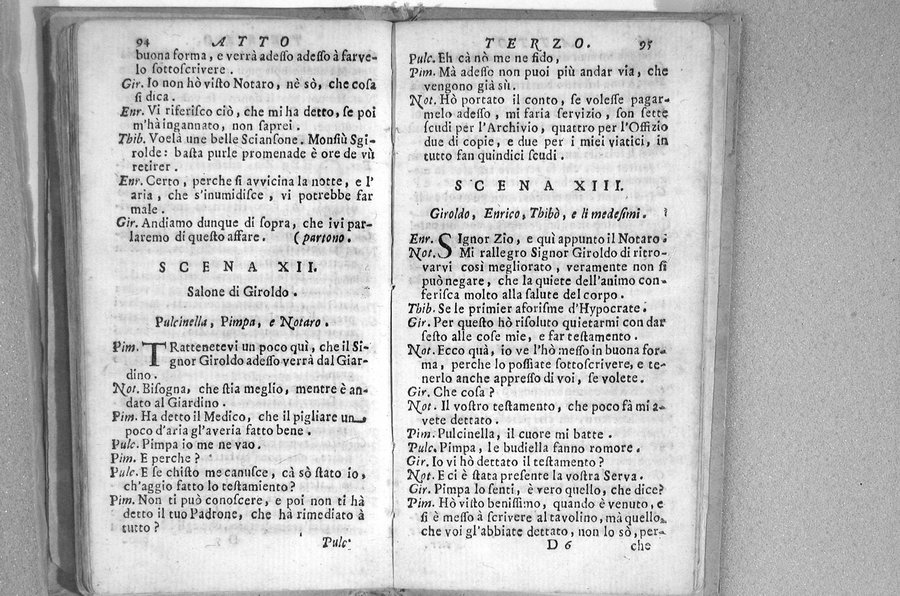 94 ATTO
buona forma, e verrà adesso adesso à farve-
lo sottoscrivere.
Gir. Io non hò visto Notaro, nè sò, che cosa
si dica.
Enr. Vi riferisco ciò, che mi ha detto, se poi
m'hà ingannato, non saprei.
Thib. Voelà une belle Sciansone. Monsiù Sgi-
rolde: basta purle promenade è ore de vù
retirer.
Enr. Certo, perche si avvicina la notte, e l'
aria, che s'inumidisce, vi potrebbe far
male.
Gir. Andiamo dunque di sopra, che ivi par-
laremo di questo affare. (partono.
SCENA XII.
Salone di Giroldo.
Pulcinella, Pimpa, e Notaro.
Pim. TRattenetevi un poco quì, che il Si-
gnor Giroldo adesso verrà dal Giar-
dino.
Not. Bisogna, che stia meglio, mentre è an-
dato al Giardino.
Pim. Ha detto il Medico, che il pigliare un
poco d'aria gl'averia fatto bene.
Pulc. Pimpa io me ne vao.
Pim. E perche?
Pulc. E se chisto me canusce, cà sò stato io,
ch'aggio fatto lo testamiento?
Pim. Non ti può conoscere, e poi non ti hà
detto il tuo Padrone, che hà rimediato à
tutto?
Pulc.
TERZO. 95
Pulc. Eh cà nò me ne fido,
Pim. Mà adesso non puoi più andar via, che
vengono già sù.
Not. Hò portato il conto, se volesse pagar-
melo adesso, mi faria servizio, son sette
scudi per l'Archivio, quattro per l'Offizio
due di copie, e due per i miei viatici, in
tutto fan quindici scudi.
SCENA XIII.
Giroldo, Enrico, Thibò, e li medesimi.
Enr. SIgnor Zio, e quì appunto il Notaro.
Not. Mi rallegro Signor Giroldo di ritro-
varvi così megliorato, veramente non si
può negare, che la quiete dell'animo con-
ferisca molto alla salute del corpo.
Thib. Se le primier aforisme d'Hypocrate.
Gir. Per questo hò risoluto quietarmi con dar
sesto alle cose mie, e far testamento.
Not. Ecco quà, io ve l'hò messo in buona for-
ma, perche lo possiate sottoscrivere, e te-
nerlo anche appresso di voi, se volete.
Gir. Che cosa?
Not. Il vostro testamento, che poco fà mi a-
vete dettato.
Pim. Pulcinella, il cuore mi batte.
Pulc. Pimpa, le budiella fanno romore.
Gir. Io vi hò dettato il testamento?
Not. E ci è stata presente la vostra Serva.
Gir. Pimpa lo senti, è vero quello, che dice?
Pim. Hò visto benissimo, quando è venuto, e
si è messo à scrivere al tavolino, mà quello,
che voi gl'abbiate dettato, non lo sò, per-
D 6 che